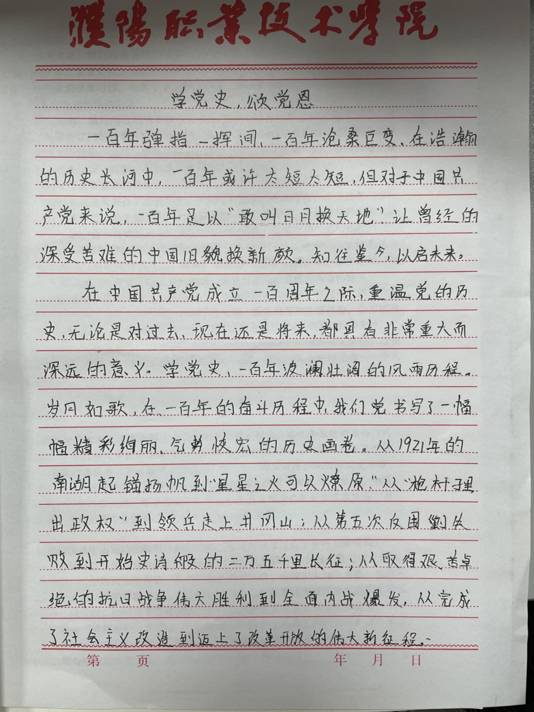 濮陽职业技术学院
学党史,颂党恩
一百年弹指一挥间,一百年沧桑巨变,在浩瀚
的历史长河中,一百年或许太短太短,但对于中国共
产党来说,一百年足以“敢叫日月换天地”让曾经的
深受苦难的中国旧貌换新颜。知往鉴今,以启未来。
在中国共产党成立一百周年之际,重温党的历
史,无论是对过去,现在还是将来,都具有非常重大而
深远的意义。学党史,一百年波澜壮阔的风雨历程。
岁月如歌,在一百年的奋斗历程中,我们党书写了一幅
幅精彩绚丽、气势恢宏的历史画卷。从1921年的
南湖起锚扬帆到“星星之火可以燎原”从“枪杆子里
出政权”到领兵走上井冈山;从第五次反围剿失
败到开始史诗般的二万五千里长征;从取得艰苦卓
绝的抗日战争伟大胜利到全面内战爆发,从完成
了社会主义改造到迈上了改革开放的伟大新征程。
第 页 年 月 日